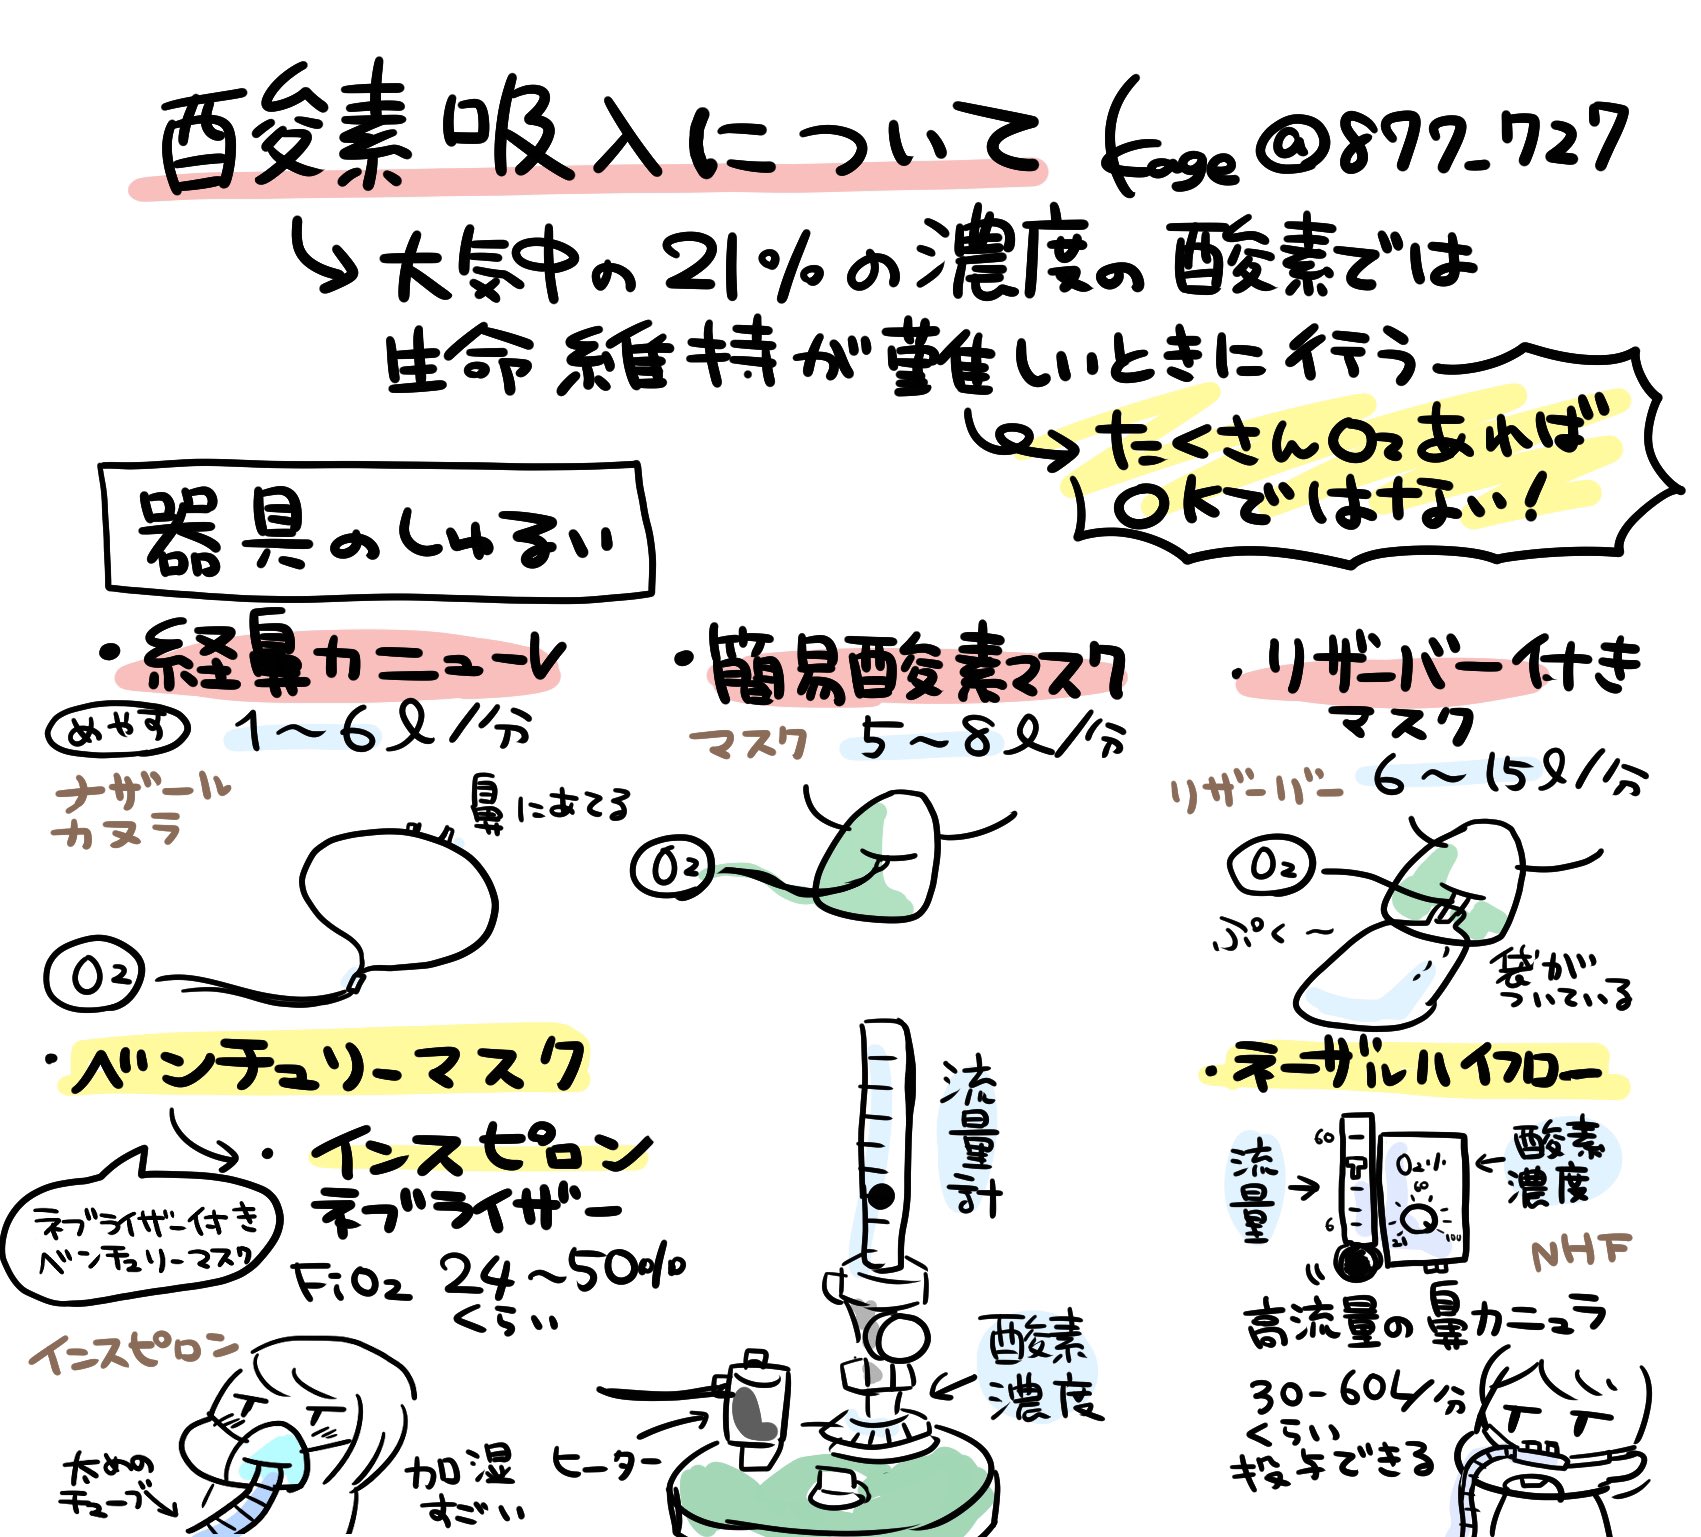 酸素吸入について Kage @877_727
大気中の21%の濃度の酸素では
生命維持が難しいときに行う
たくさんO2あれば
OKではない!
器具のしゅるい
・経鼻カニューレ
めやす 1〜6ℓ/分
ナザール
カヌラ
鼻にあてる
O2
・簡易酸素マスク
マスク 5〜8ℓ/分
O2
・リザーバー付き
マスク
リザーバー 6〜15ℓ/分
O2
ぷく〜
袋が
ついている
・ベンチュリーマスク
・インスピロン
ネブライザー
ネブライザー付き
ベンチュリーマスク
FiO2 24〜50%
くらい
インスピロン
太めの
チューブ
加湿
すごい
流量計
酸素
濃度
ヒーター
・ネーザルハイフロー
流量
60
6
O2%
60
21
100
酸素
濃度
NHF
高流量の鼻カニュラ
30-60L/分
くらい
投与できる